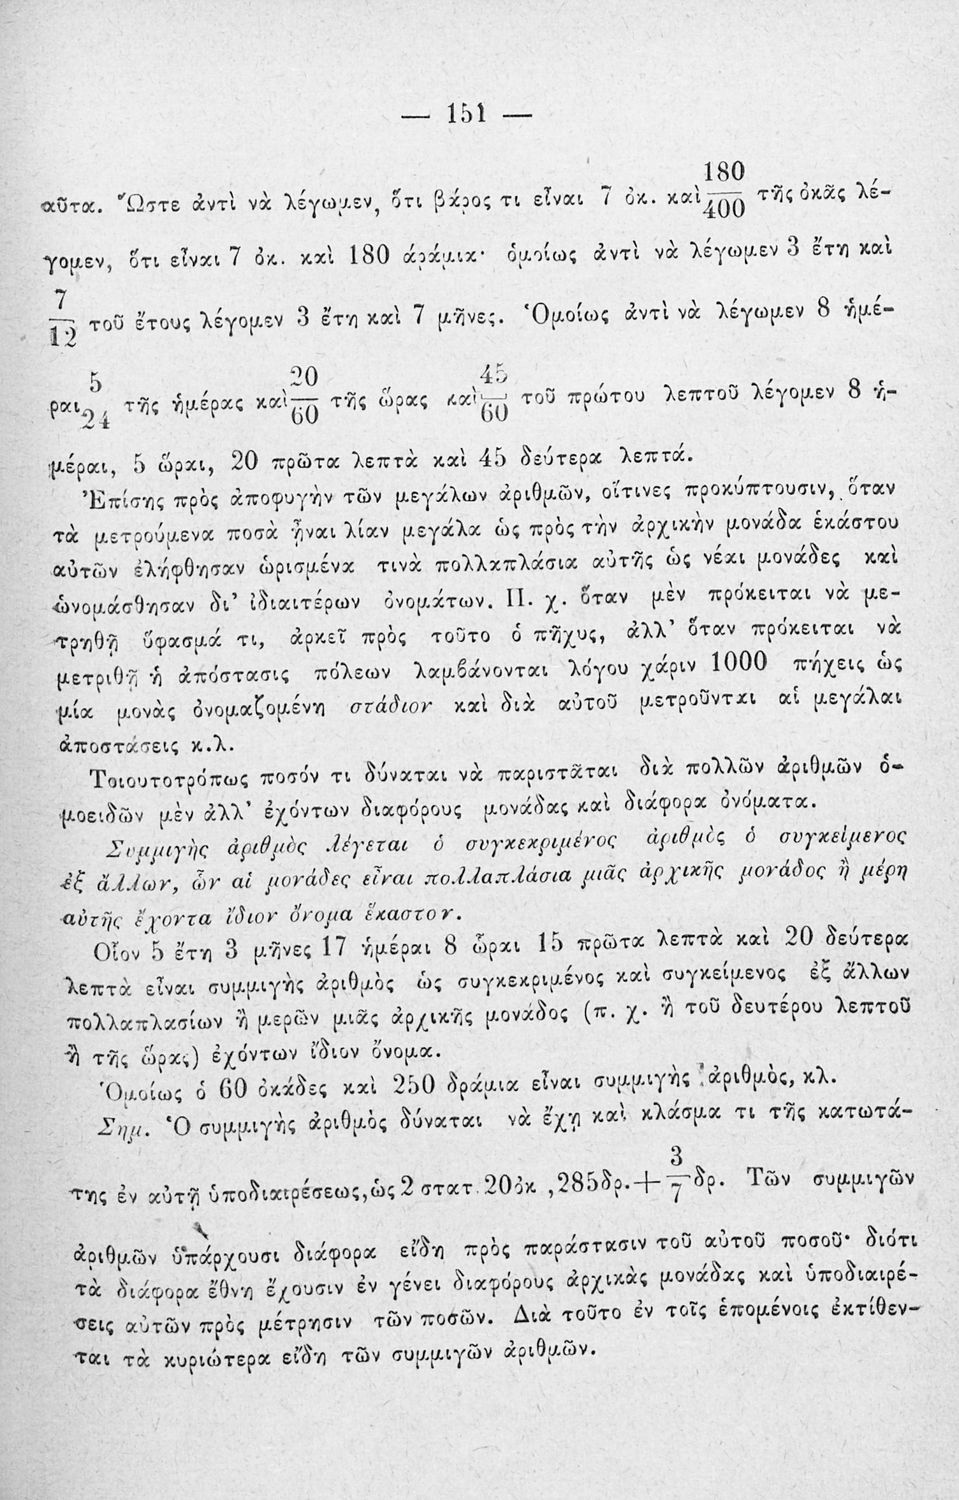 — 151 —
αὗτα. Ὥστε ἀντὶ νὰ λέγωμεν, ὅτι βάρος τι εἶναι 7 ὀκ. καὶ 180/400 τῆς ὀκᾶς λέ-
γομεν, ὅτι εἶναι 7 ὀκ. καὶ 180 δράμια· ὁμοίως ἀντὶ νὰ λέγωμεν 3 ἔτη καὶ
7/12 τοῦ ἔτους λέγομεν 3 ἔτη καὶ 7 μῆνες. Ὁμοίως ἀντὶ νὰ λέγωμεν 8 ἡμέ-
ραι 5/24 τῆς ἡμέρας καὶ 20/60 τῆς ὥρας καὶ 45/60 τοῦ πρώτου λεπτοῦ λέγομεν 8 ἡ-
μέραι, 5 ὥραι, 20 πρῶτα λεπτὰ καὶ 45 δεύτερα λεπτά.
Ἐπίσης πρὸς ἀποφυγὴν τῶν μεγάλων ἀριθμῶν, οἵτινες προκύπτουσιν, ὅταν
τὰ μετρούμενα ποσὰ ᾖναι λίαν μεγάλα ὡς πρὸς τὴν ἀρχικὴν μονάδα ἑκάστου
αὐτῶν ἐλήφθησαν ὡρισμένα τινὰ πολλαπλάσια αὐτῆς ὡς νέαι μονάδες καὶ
ὠνομάσθησαν δι' ἰδιαιτέρων ὀνομάτων. Π. χ. ὅταν μὲν πρόκειται νὰ με-
τρηθῇ ὕφασμά τι, ἀρκεῖ πρὸς τοῦτο ὁ πῆχυς, ἀλλ' ὅταν πρόκειται νὰ
μετριθῇ ἡ ἀπόστασις πόλεων λαμβάνονται λόγου χάριν 1000 πήχεις ὡς
μία μονὰς ὀνομαζομένη στάδιον καὶ διὰ αὐτοῦ μετροῦνται αἱ μεγάλαι
ἀποστάσεις κ.λ.
Τοιουτοτρόπως ποσόν τι δύναται νὰ παριστᾶται διὰ πολλῶν ἀριθμῶν ὁ-
μοειδῶν μὲν ἀλλ' ἐχόντων διαφόρους μονάδας καὶ διάφορα ὀνόματα.
Συμμιγὴς ἀριθμὸς λέγεται ὁ συγκεκριμένος ἀριθμὸς ὁ συγκείμενος
ἐξ ἄλλων, ὧν αἱ μονάδες εἶναι πολλαπλάσια μιᾶς ἀρχικῆς μονάδος ἢ μέρη
αὐτῆς ἔχοντα ἴδιον ὄνομα ἕκαστον.
Οἷον 5 ἔτη 3 μῆνες 17 ἡμέραι 8 ὧραι 15 πρῶτα λεπτὰ καὶ 20 δεύτερα
λεπτὰ εἶναι συμμιγὴς ἀριθμὸς ὡς συγκεκριμένος καὶ συγκείμενος ἐξ ἄλλων
πολλαπλασίων ἢ μερῶν μιᾶς ἀρχικῆς μονάδος (π. χ. ἢ τοῦ δευτέρου λεπτοῦ
ἢ τῆς ὥρας) ἐχόντων ἴδιον ὄνομα.
Ὁμοίως ὁ 60 ὀκάδες καὶ 250 δράμια εἶναι συμμιγὴς ἀριθμὸς, κλ.
Σημ. Ὁ συμμιγὴς ἀριθμὸς δύναται νὰ ἔχῃ καὶ κλάσμα τι τῆς κατωτά-
της ἐν αὐτῇ ὑποδιαιρέσεως, ὡς 2 στατ. 20ὀκ, 285δρ. + 3/7 δρ. Τῶν συμμιγῶν
ἀριθμῶν ὑπάρχουσι διάφορα εἴδη πρὸς παράστασιν τοῦ αὐτοῦ ποσοῦ· διότι
τὰ διάφορα ἔθνη ἔχουσιν ἐν γένει διαφόρους ἀρχικὰς μονάδας καὶ ὑποδιαιρέ-
σεις αὐτῶν πρὸς μέτρησιν τῶν ποσῶν. Διὰ τοῦτο ἐν τοῖς ἑπομένοις ἐκτίθεν-
ται τὰ κυριώτερα εἴδη τῶν συμμιγῶν ἀριθμῶν.